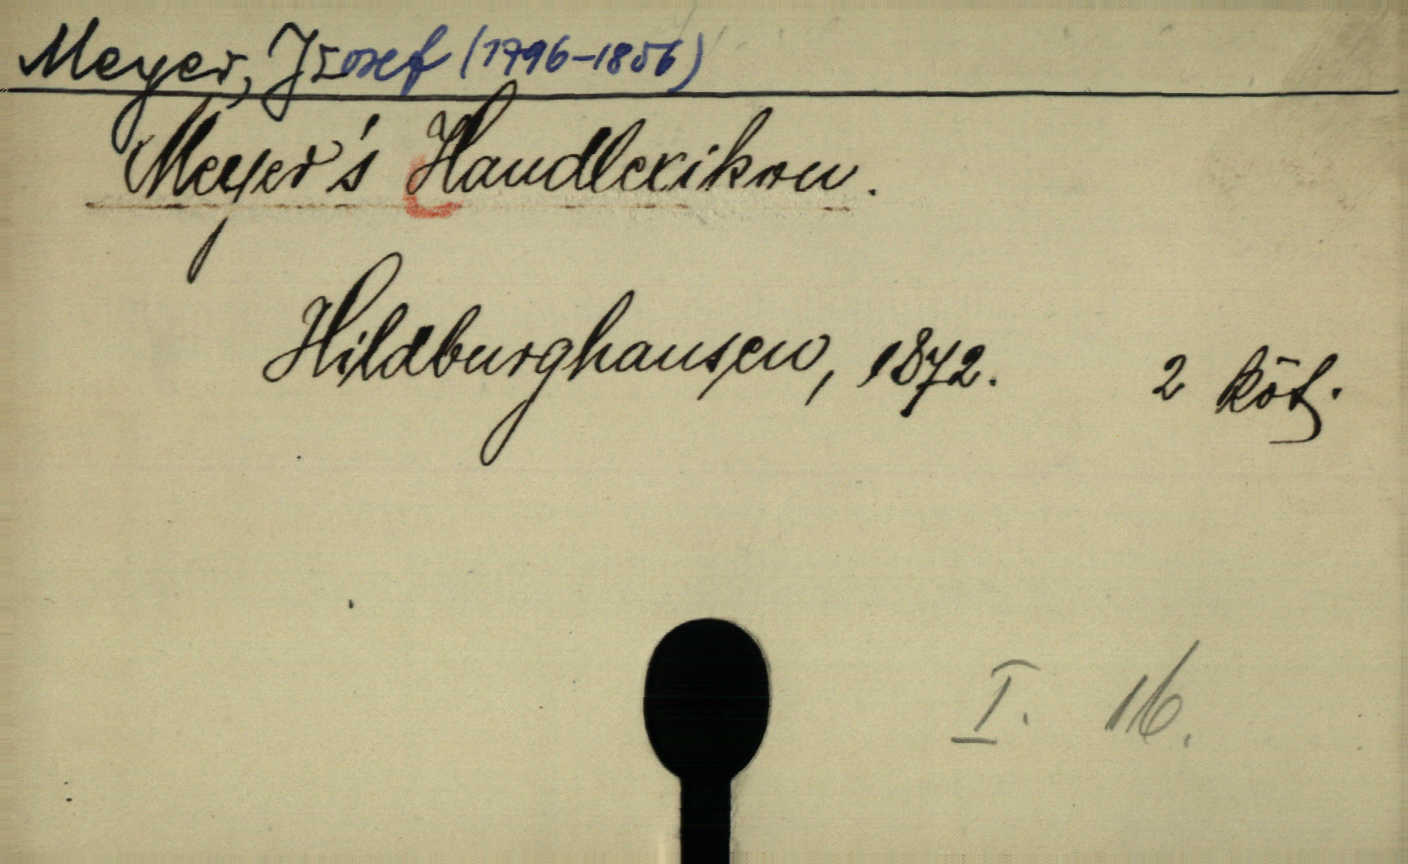 Meyer, Jozsef (1796-1856)
Meyer's Handlexikon.
Hildburghausen, 1872. 2 köt.
I. 16.